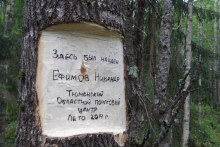 Здесь был найден
Ефимов Николай
Тюменский
Областной поисковый
центр
Лето 2014 г.